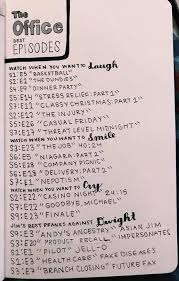 The
Office
BEST
EPISODES
WATCH WHEN YOU WANT TO Laugh
S1:E5 "BASKETBALL"
S2:E1 "THE DUNDIES"
S4:E9 "DINNER PARTY"
S5:E14 "STRESS RELIEF: PART 1"
S7:E11 "CLASSY CHRISTMAS: PART 1"
S2:E12 "THE INJURY"
S5:E26 "CASUAL FRIDAY"
S7:E17 "THREAT LEVEL MIDNIGHT"
WATCH WHEN YOU WANT TO Smile
S3:E23 "THE JOB" 40:24
S6:E5 "NIAGARA: PART 2"
S5:E28 "COMPANY PICNIC"
S6:E18 "DELIVERY: PART 2"
S7:E1 "NEPOTISM"
WATCH WHEN YOU WANT TO Cry
S2:E22 "CASINO NIGHT" 24:15
S7:E22 "GOODBYE, MICHAEL"
S9:E23 "FINALE"
JIM'S BEST PRANKS AGAINST Dwight
S9:E3 "ANDY'S ANCESTRY" ASIAN JIM
S3:E20 "PRODUCT RECALL" IMPERSONATES
S1:E1 "PILOT" JELL-O
S1:E3 "HEALTHCARE" FAKE DISEASES
S3:E7 "BRANCH CLOSING" FUTURE FAX